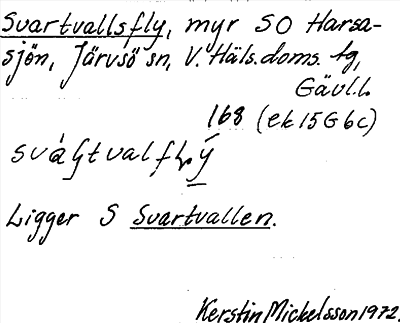 Svartvallsfly, myr SO Harsa-
sjön, Järvsö sn, V. Häls. doms. tg,
Gävl.l.
168 (ek 15 G 6c)
Ligger S Svartvallen.
Kerstin Mickelsson 1972.